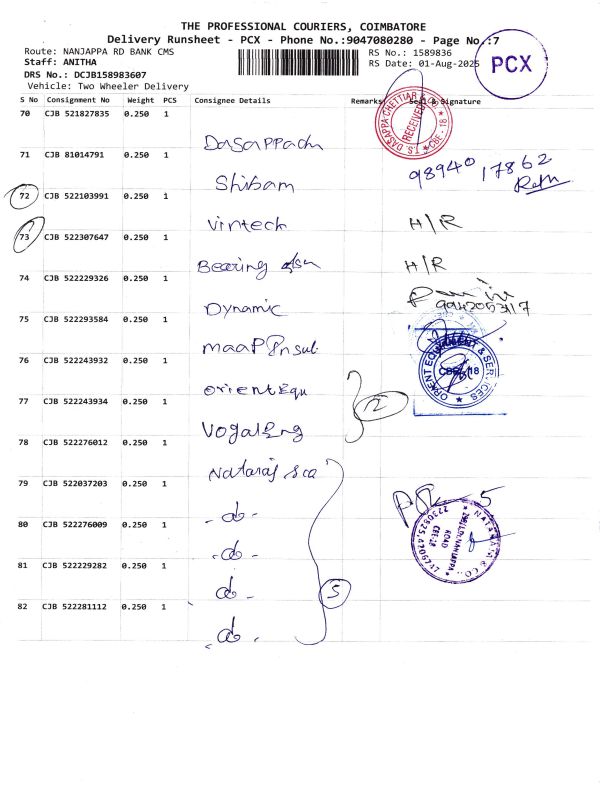 THE PROFESSIONAL COURIERS, COIMBATORE
Delivery Runsheet - PCX - Phone No.:9047080280 - Page No.:7
Route: NANJAPPA RD BANK CMS
RS No.: 1589836
Staff: ANITHA
RS Date: 01-Aug-2025
PCX
DRS No.: DCJB158983607
Vehicle: Two Wheeler Delivery
S No Consignment No Weight PCS Consignee Details Remarks Seal & Signature
70 CJB 521827835 0.250 1 Dasappach
T.S. DASAPPA CHETTIAR
RECEIVED
CBE - 18
71 CJB 81014791 0.250 1 Shibam 98940 17862
72 CJB 522103991 0.250 1 Vintech H/R
73 CJB 522307647 0.250 1 Bearing H/R
74 CJB 522229326 0.250 1 Dynamic 9942053117
75 CJB 522293584 0.250 1 maap Insul
76 CJB 522243932 0.250 1 Orient Equ
ORIENT EQUIPMENT & SERVICES
CBE - 18
77 CJB 522243934 0.250 1 Vogal Eng
12
78 CJB 522276012 0.250 1 Nataraj sca
79 CJB 522037203 0.250 1 - do -
5
NATARAJA & CO.
NANJAPPA
ROAD
CBE-18
80 CJB 522276009 0.250 1 - do -
81 CJB 522229282 0.250 1 do -
5
82 CJB 522281112 0.250 1 - do -